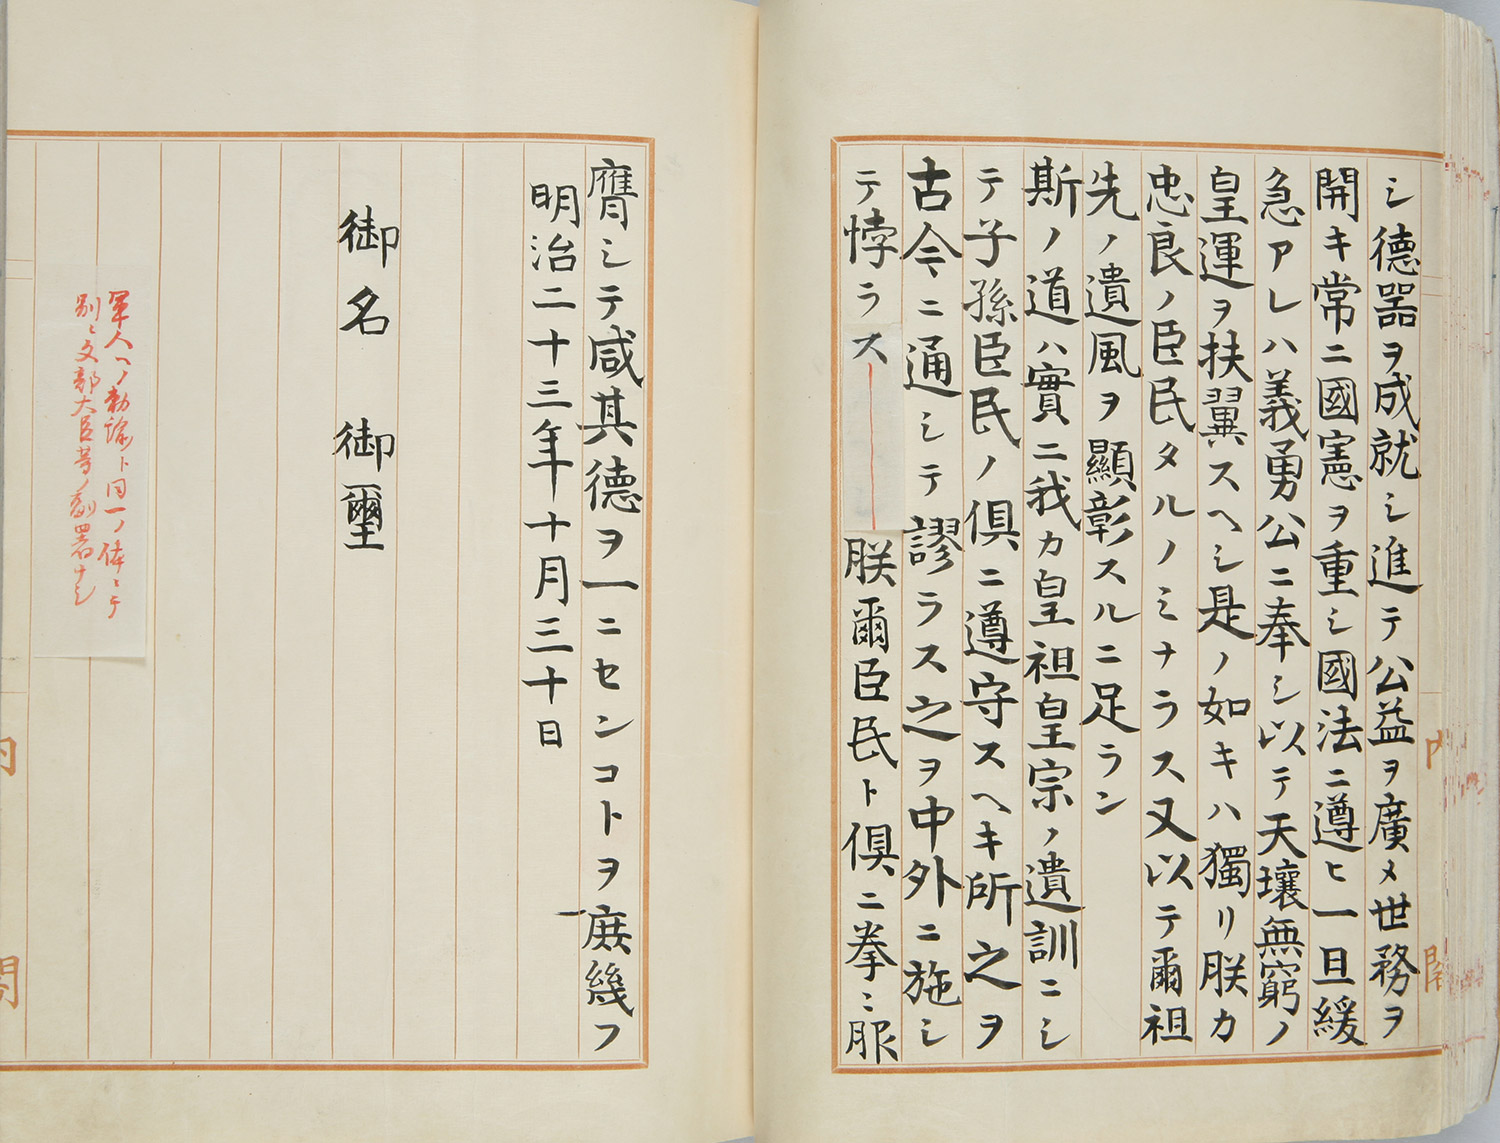 シ德器ヲ成就シ進テ公益ヲ廣メ世務ヲ
開キ常ニ國憲ヲ重シ國法ニ遵ヒ一旦緩
急アレハ義勇公ニ奉シ以テ天壤無窮ノ
皇運ヲ扶翼スヘシ是ノ如キハ獨リ朕カ
忠良ノ臣民タルノミナラス又以テ爾祖
先ノ遺風ヲ顯彰スルニ足ラン
斯ノ道ハ實ニ我カ皇祖皇宗ノ遺訓ニシ
テ子孫臣民ノ俱ニ遵守スヘキ所之ヲ
古今ニ通シテ謬ラス之ヲ中外ニ施シ
テ悖ラス朕爾臣民ト俱ニ拳々服
膺シテ咸其德ヲ一ニセンコトヲ庶幾フ
明治二十三年十月三十日
御名御璽
軍人ヘノ勅諭ト同一ノ体ニテ
別ニ文部大臣等ノ副署ナシ
内閣
内閣